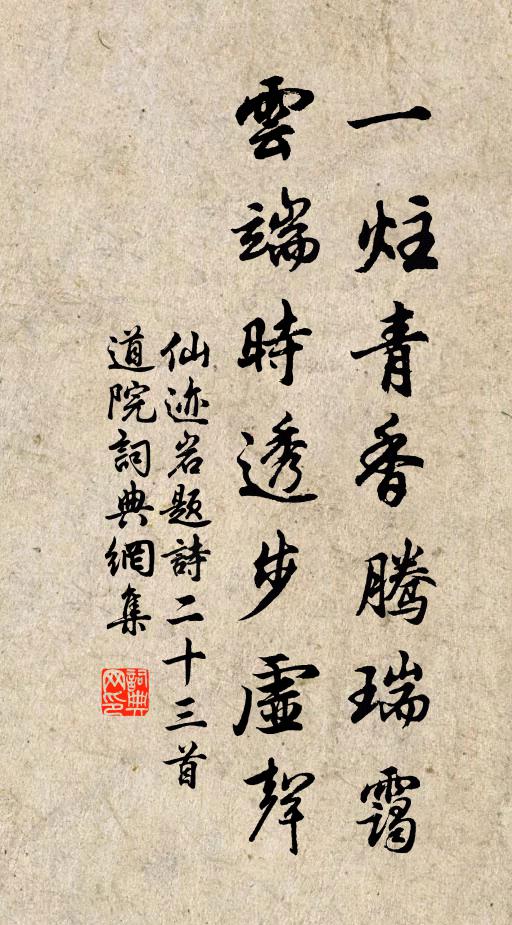 一炷青香騰瑞靄
雲端時透步虛聲
仙迹岩题詩二十三首
道院詞典網集
詞典网印